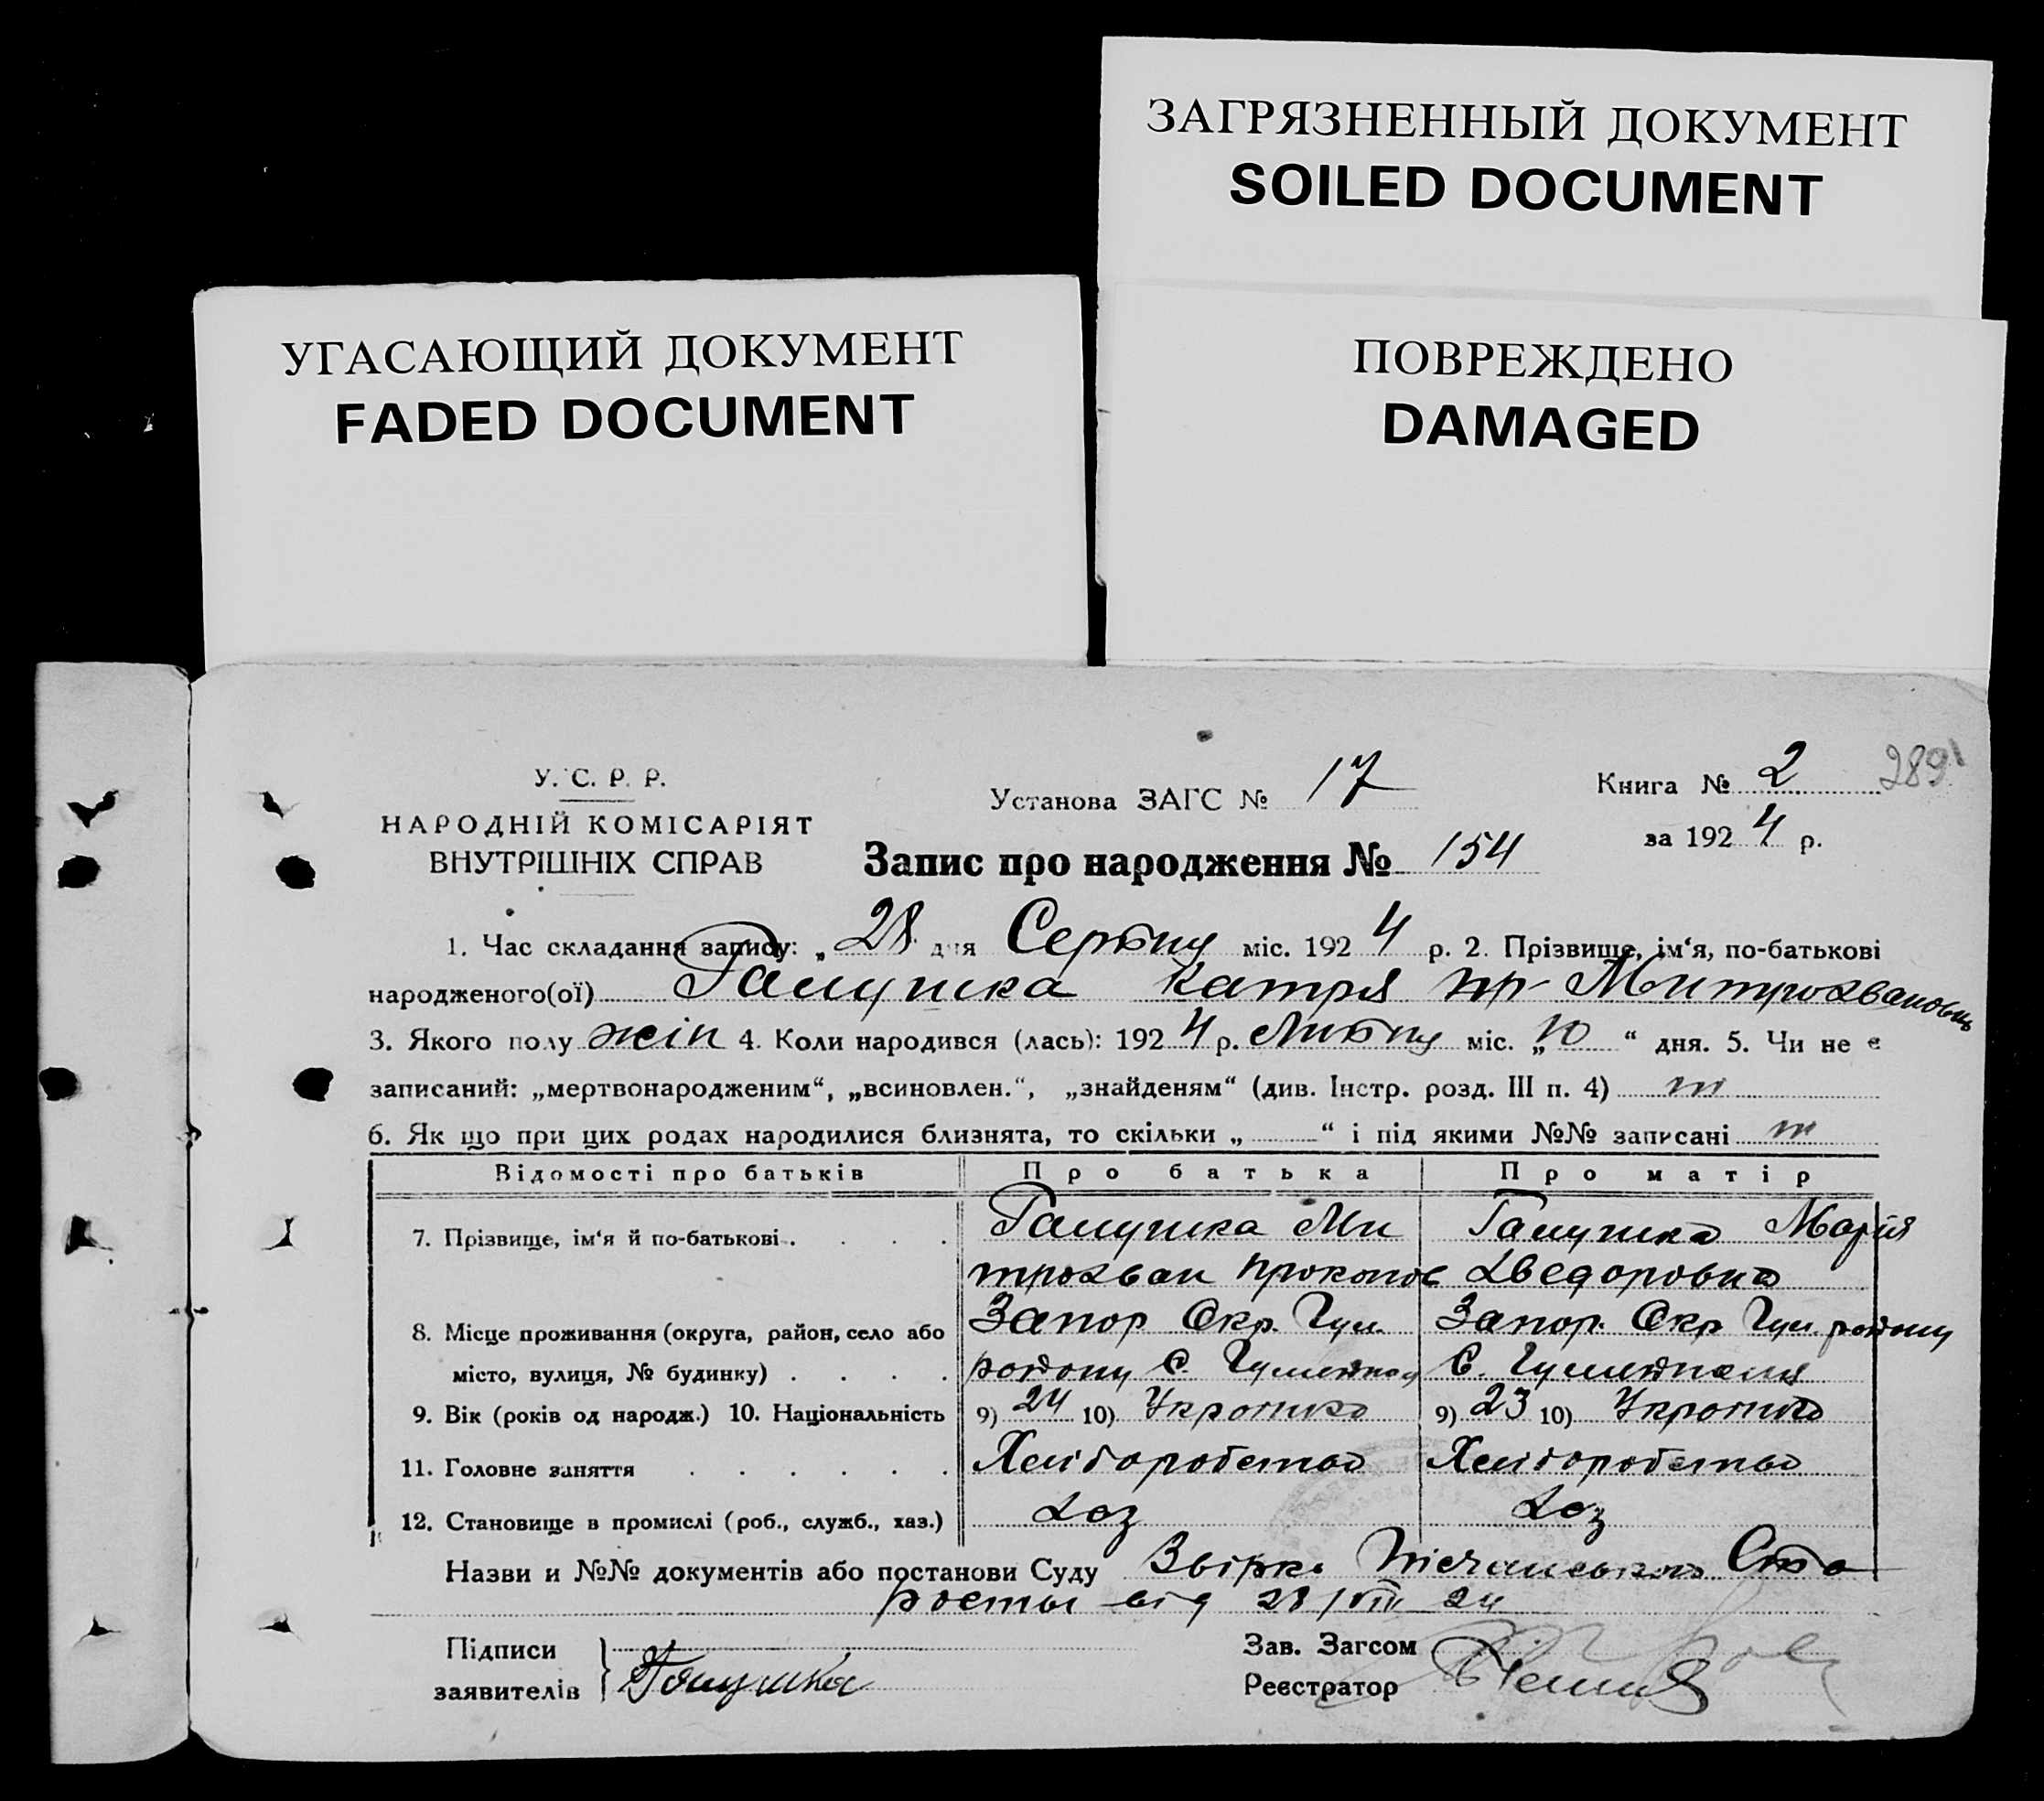 ЗАГРЯЗНЕННЫЙ ДОКУМЕНТ
SOILED DOCUMENT
УГАСАЮЩИЙ ДОКУМЕНТ
FADED DOCUMENT
ПОВРЕЖДЕНО
DAMAGED
У. С. Р. Р.
НАРОДНІЙ КОМІСАРІЯТ
ВНУТРІШНІХ СПРАВ
Установа ЗАГС № 17
Книга № 2 289
за 1924 р.
Запис про народження № 154
1. Час складання запису: „ 28 дня Серпну міс. 1924 р. 2. Прізвище, ім‘я, по-батькові
народженого(ої) Галушка Катря Митрохвановна
3. Якого полу жін 4. Коли народився (лась): 1924 р. Липну міс. „10“ дня. 5. Чи не є
записаний: „мертвонародженим“, „всиновлен.“, „знайденям“ (див. Інстр. розд. III п. 4)
6. Як що при цих родах народилися близнята, то скільки „ “ і під якими №№ записані
Відомості про батьків Про батька Про матір
7. Прізвище, ім‘я й по-батькові Галушка Ми Галушка Марія
трохван Прокопов Хведоровна
8. Місце проживання (округа, район, село або Запор Окр. Гул. Запор. Окр Гул. району
місто, вулиця, № будинку) району с. Гуляйполя
9. Вік (років од народж.) 10. Національність 9) 24 10) Українка 9) 23 10) Українка
11. Головне заняття Хліборобство Хліборобство
12. Становище в промислі (роб., служб., хаз.) Хоз Хоз
Назви и №№ документів або постанови Суду Ста
росты від 28/VIII 24
Підписи
заявителів Галушка
Зав. Загсом
Реєстратор